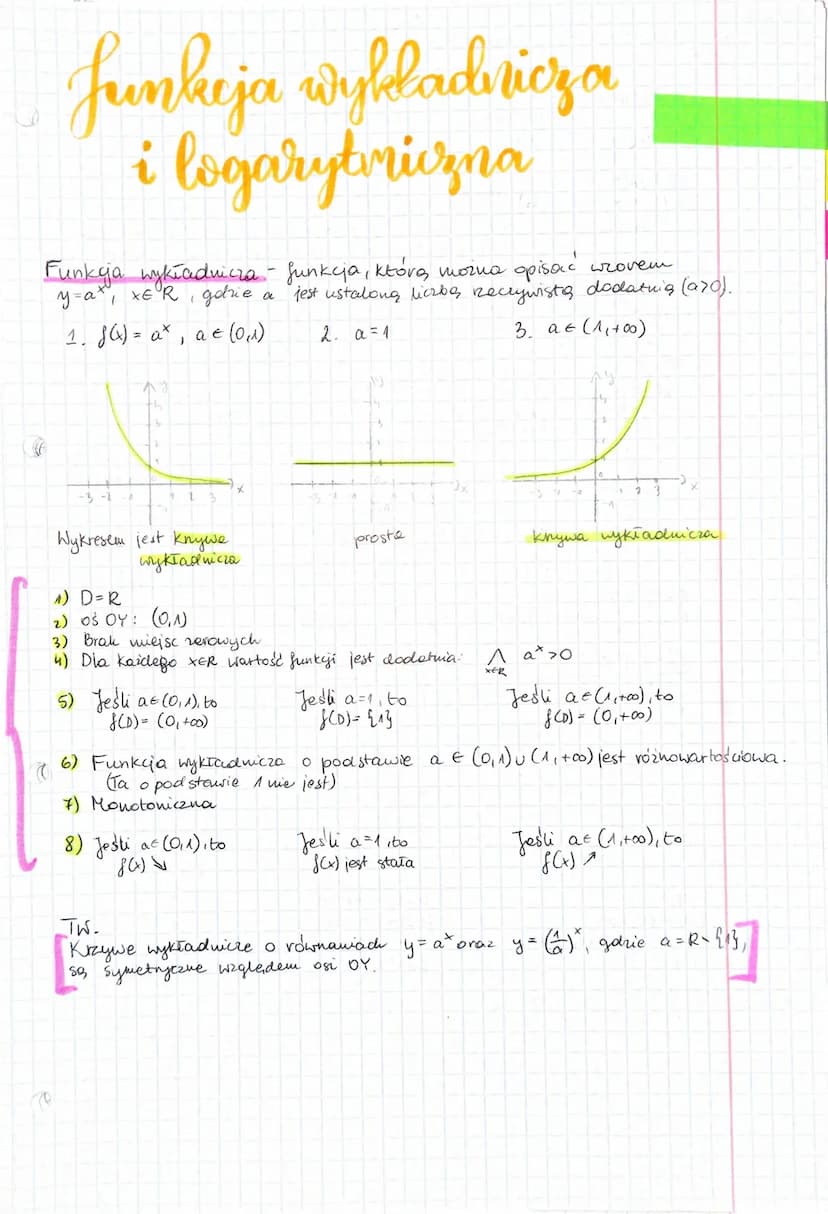 funkcja wykładnicza
i logarytmiczna
Funkcja wykładnicza - funkcja, którą można opisać wzorem
y=aˣ, x∈R, gdzie a jest ustaloną liczbą rzeczywistą dodatnią (a>0).
1. f(x) = aˣ, a∈(0,1) 2. a=1 3. a∈(1,+∞)
Wykresem jest krzywa prosta krzywa wykładnicza
wykładnicza
1) D=R
2) oś OY: (0,1)
3) Brak miejsc zerowych
4) Dla każdego x∈R wartość funkcji jest dodatnia: ⋀ aˣ>0
x∈R
5) Jeśli a∈(0,1), to Jeśli a=1, to Jeśli a∈(1,+∞), to
f(D)= (0,+∞) f(D)= {1} f(D) = (0,+∞)
6) Funkcja wykładnicza o podstawie a ∈ (0,1)∪(1,+∞) jest różnowartościowa.
(Ta o podstawie 1 nie jest)
7) Monotoniczna
8) Jeśli a∈(0,1), to Jeśli a=1, to Jeśli a∈(1,+∞), to
f(x) ↘ f(x) jest stała f(x) ↗
TW.
Krzywe wykładnicze o równaniach y=aˣ oraz y=(1/a)ˣ, gdzie a=R\{1},
są symetryczne względem osi OY.